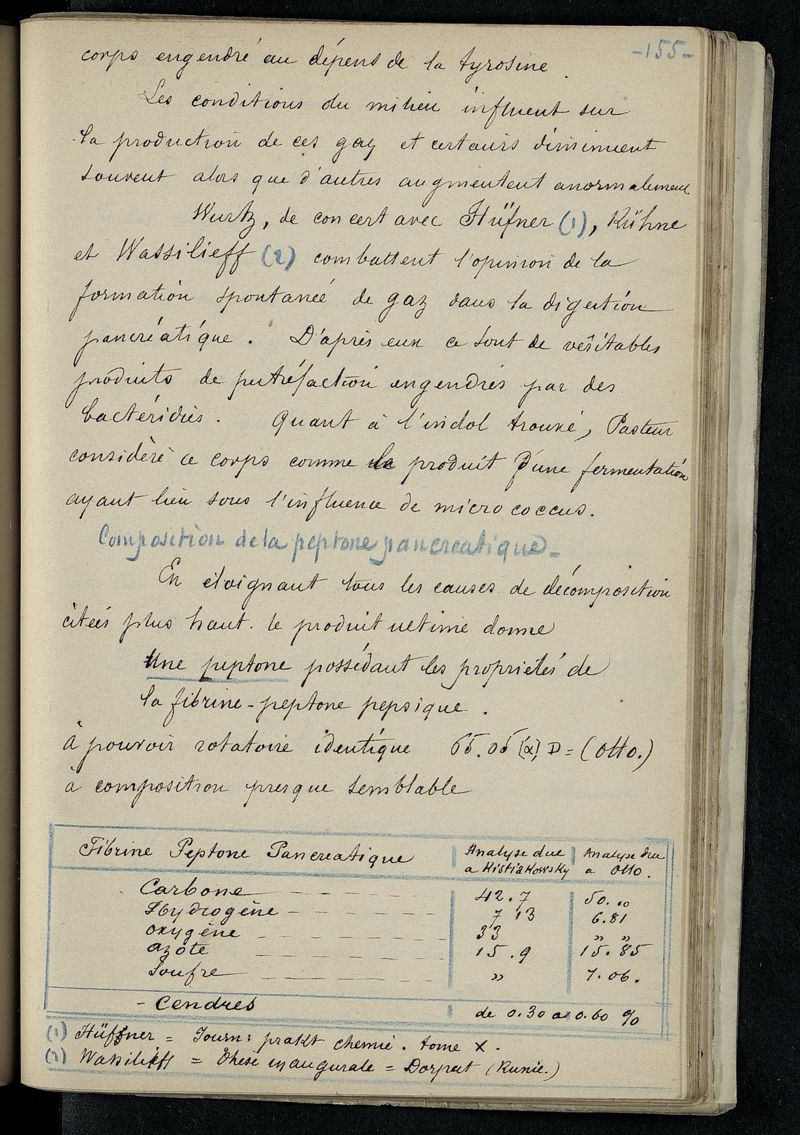 -155-
corps engendré au dépens de la tyrosine.
Les conditions du milieu influent sur
la production de ces gaz et certains diminuent
souvent alors que d'autres augmentent anormalement
Wurtz, de concert avec Hüfner (1), Kühne
et Wassilieff (2) combattent l'opinion de la
formation spontanée de gaz dans la digestion
pancréatique. D'après eux ce sont de véritables
produits de putréfaction engendrés par des
bactéridies. Quant à l'indol trouvé, Pasteur
considère ce corps comme le produit d'une fermentation
ayant lieu sous l'influence de micrococcus.
Composition de la peptone pancreatique_
En éloignant tous les causes de décomposition
citées plus haut. le produit ultime donne
Une peptone possédant les propriétés de
la fibrine-peptone pepsique.
à pouvoir rotatoire identique 65.05 [α] D = (Otto.)
à composition presque semblable
Fibrine Peptone Pancreatique | Analyse due a Kistiakowsky | Analyse due a Otto.
Carbone 42.7 50.10
Hydrogène 7 13 6.81
Oxygène 33 " "
Azote 15.9 15.85
Soufre " 1.06.
- Cendres de 0.30 a 0.60 %
(1) Hüffner = Journ: prakt chemie. tome X.
(2) Wassilieff = Thése inaugurale = Dorpat (Runie.)